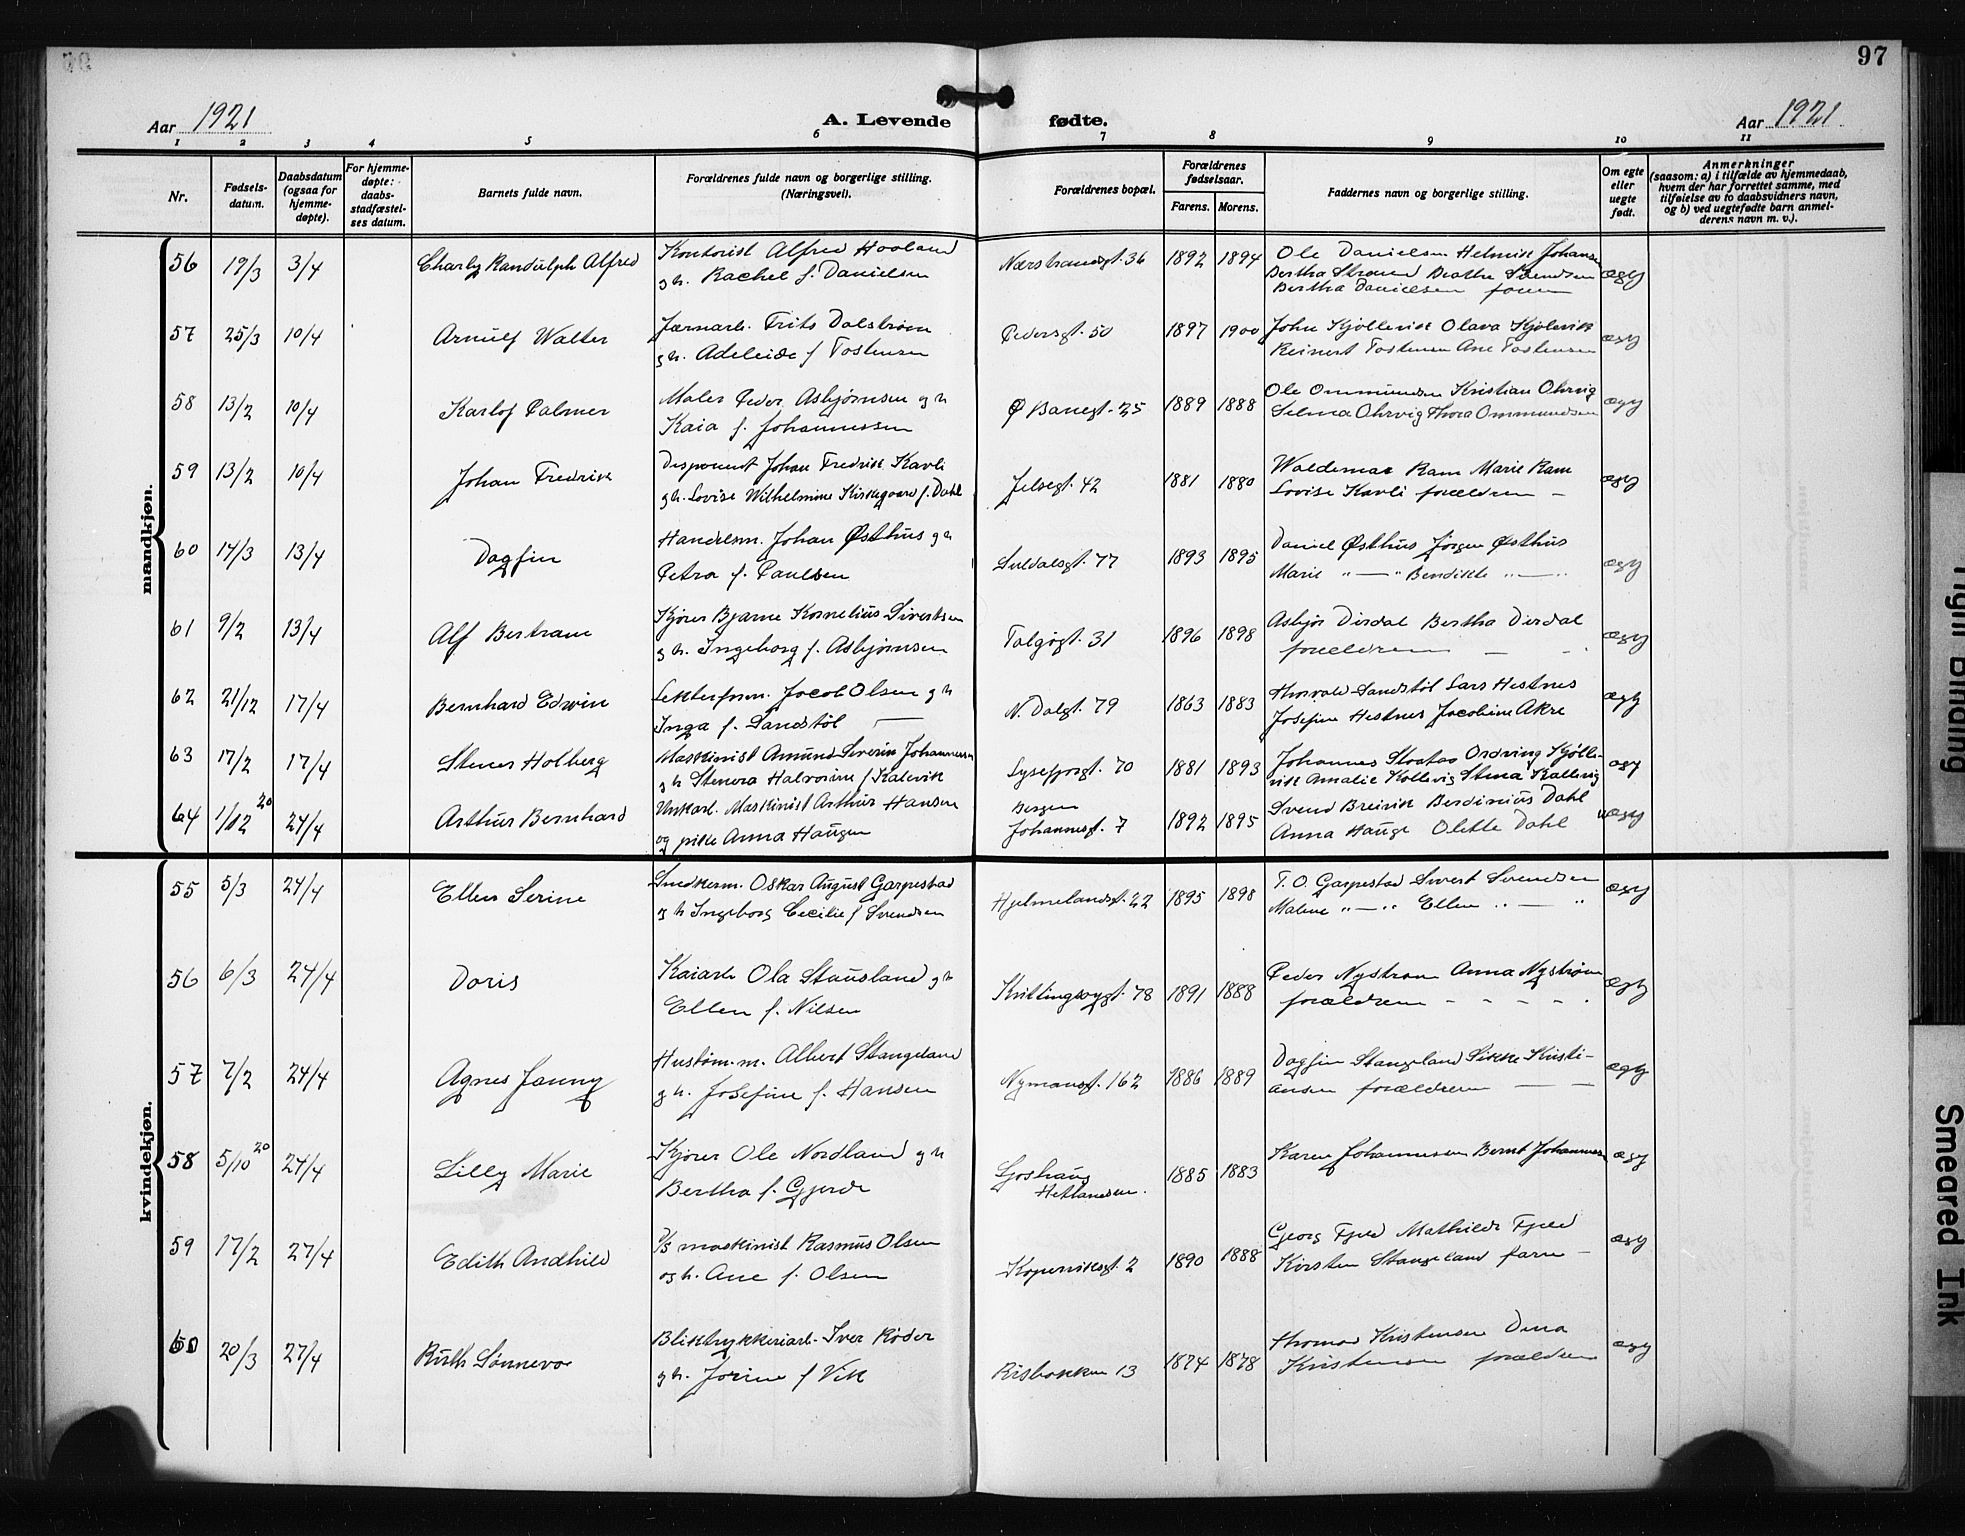 97
Aar 1921
A. Levende fødte.
Aar 1921
1 2 3 4 5 6 7 8 9 10 11
Nr.
Fødsels-
datum.
Daabsdatum
(ogsaa for
hjemme-
døpte).
For hjemme-
døpte:
daabs-
stadfæstel-
ses datum.
Barnets fulde navn.
Forældrenes fulde navn og borgerlige stilling.
(Næringsvei).
Forældrenes bopæl.
Forældrenes
fødselsaar.
Farens. Morens.
Faddernes navn og borgerlige stilling.
Om egte
eller
uegte
født.
Anmerkninger
(saasom: a) i tilfælde av hjemmedaab,
hvem der har forrettet samme, med
tilføielse av to daabsvidners navn,
og b) ved uegtefødte barn anmel-
derens navn m. v.).
mandkjøn.
56 19/3 3/4 Charly Randulph Alfred
Kontorist Alfred Hooland
g h. Rachel f. Danielsen
Nærstrandsgt. 36 1892 1894
Ole Danielsen Helmik Johansen
Bertha Danielsen
ægt
57 25/3 10/4 Arnulf Walter
Jærnarb. Frits Dalstrøm
g h. Adeleide f Tostensen
Pedersgt. 50 1897 1900
John Kjöllevik Olava Kjölevik
Reinert Tostensen Ane Tostensen
ægt
58 13/2 10/4 Karlof Palmer
Maler Peder Asbjørnsen g h
Kaia f. Johannessen
Ø Banegt. 25 1889 1888
Ole Ommundsen Kristian Ohrvig
Selma Ohrvig Thora Ommundsen
ægt
59 13/2 10/4 Johan Fredrik
Disponent Johan Fredrik Kavli
g h. Lovise Wilhelmine Kirkegaard f. Dahl
Jelsegt. 42 1881 1880
Waldemar Ram Marie Ram
Lovise Kavli forældren —
ægt
60 14/3 13/4 Dagfin
Handelsm. Johan Østhus g h
Petra f. Paulsen
Suldalsgt. 77 1893 1895
Daniel Østhus Jörgen Østhus
Marie " — " Bendikte " — "
ægt
61 9/2 13/4 Alf Bertram
Kjører Bjarne Kornelius Sivertsen
g h. Ingeborg f. Asbjørnsen
Talgøgt. 31 1896 1898
Asbjør Dirdal Bertha Dirdal
forældren — -
ægt
62 21/12 17/4 Bernhard Edwin
Jacob Olsen g h
Inga f. Sandstöl —
N. Dalgt. 79 1863 1883
Thorvald Sandstöl Lars Hestnes
Josefine Hestnes Jacobine Akre
ægt
63 17/2 17/4 Stener Holberg
Maskinist Amund Severin Johannessen
g h Stenera Halvorine f Kalevik
Lysefjorgt. 70 1881 1893
Johannes Ordving Kjölle-
vik Amalie Kollevig Stena Kallevig
ægt
64 1/12 20 24/4 Arthur Bernhard
Unkarl. Maskinist Arthur Hansen
og pike Anna Haugen
Bergen
Johannesgt. 7 1892 1895
Svend Breivik Berdinius Dahl
Anna Hauge Olette Dahl
uægt
kvindekjøn.
55 5/3 24/4 Ellen Serine
Snedkerm. Oskar August Garpestad
g h Ingeborg Cecilie f Svendsen
Hjelmelandsgt. 22 1895 1898
T. O. Garpestad Sivert Svendsen
Malene " — " Ellen " — "
ægt
56 6/3 24/4 Doris
Kaiarb Ola Stausland g h
Ellen f. Nilsen
Kvitlingsøygt. 78 1891 1888
Peder Nystrøm Anna Nystrøm
forældren - - - - .
ægt
57 7/2 24/4 Agnes Jonny
Hustøm. m. Albert Stangeland
g h. Josefine f. Hansen
Nymansgt. 162 1886 1889
Dagfin Stangeland Sikke Kristi-
ansen forældren — —
ægt
58 5/10 20 24/4 Lilly Marie
Kjører Ole Nordland g h
Bertha f. Gjerde
Gjoshaug
Hetlandsm. 1885 1883
Karen Johannessen Bernt Johannessen
ægt
59 17/2 27/4 Edith Andhild
D/s maskinist Rasmus Olsen
og h. Ane f. Olsen
Kopervikgt. 2 1890 1888
Georg Fjeld Mathilde Fjeld
Kirsten Stangeland faren —
ægt
60 20/3 27/4 Ruth Sønnevo
Bliktrykkeriarb. Iver Røder
g h. Jorine f Vik
Risbakken 13 1874 1878
Thomas Kristensen Dina
Kristensen forældren
ægt
Tight Binding
Smeared Ink